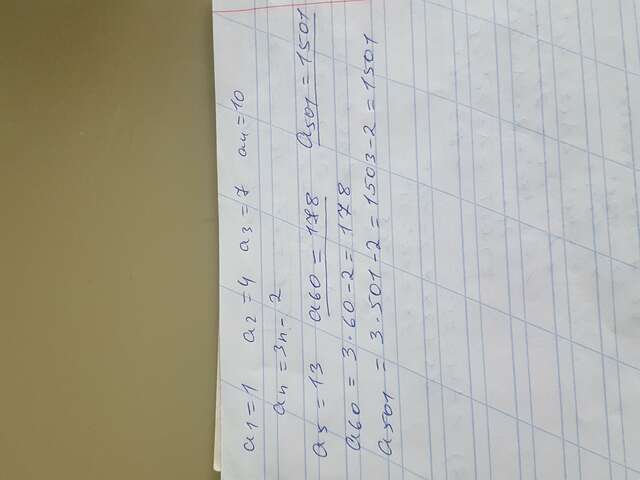 a₁=1 a₂=4 a₃=7 a₄=10
aₙ=3n-2
a₅=13 a₆₀=178 a₅₀₁=1501
a₆₀=3·60-2=178
a₅₀₁=3·501-2=1503-2=1501